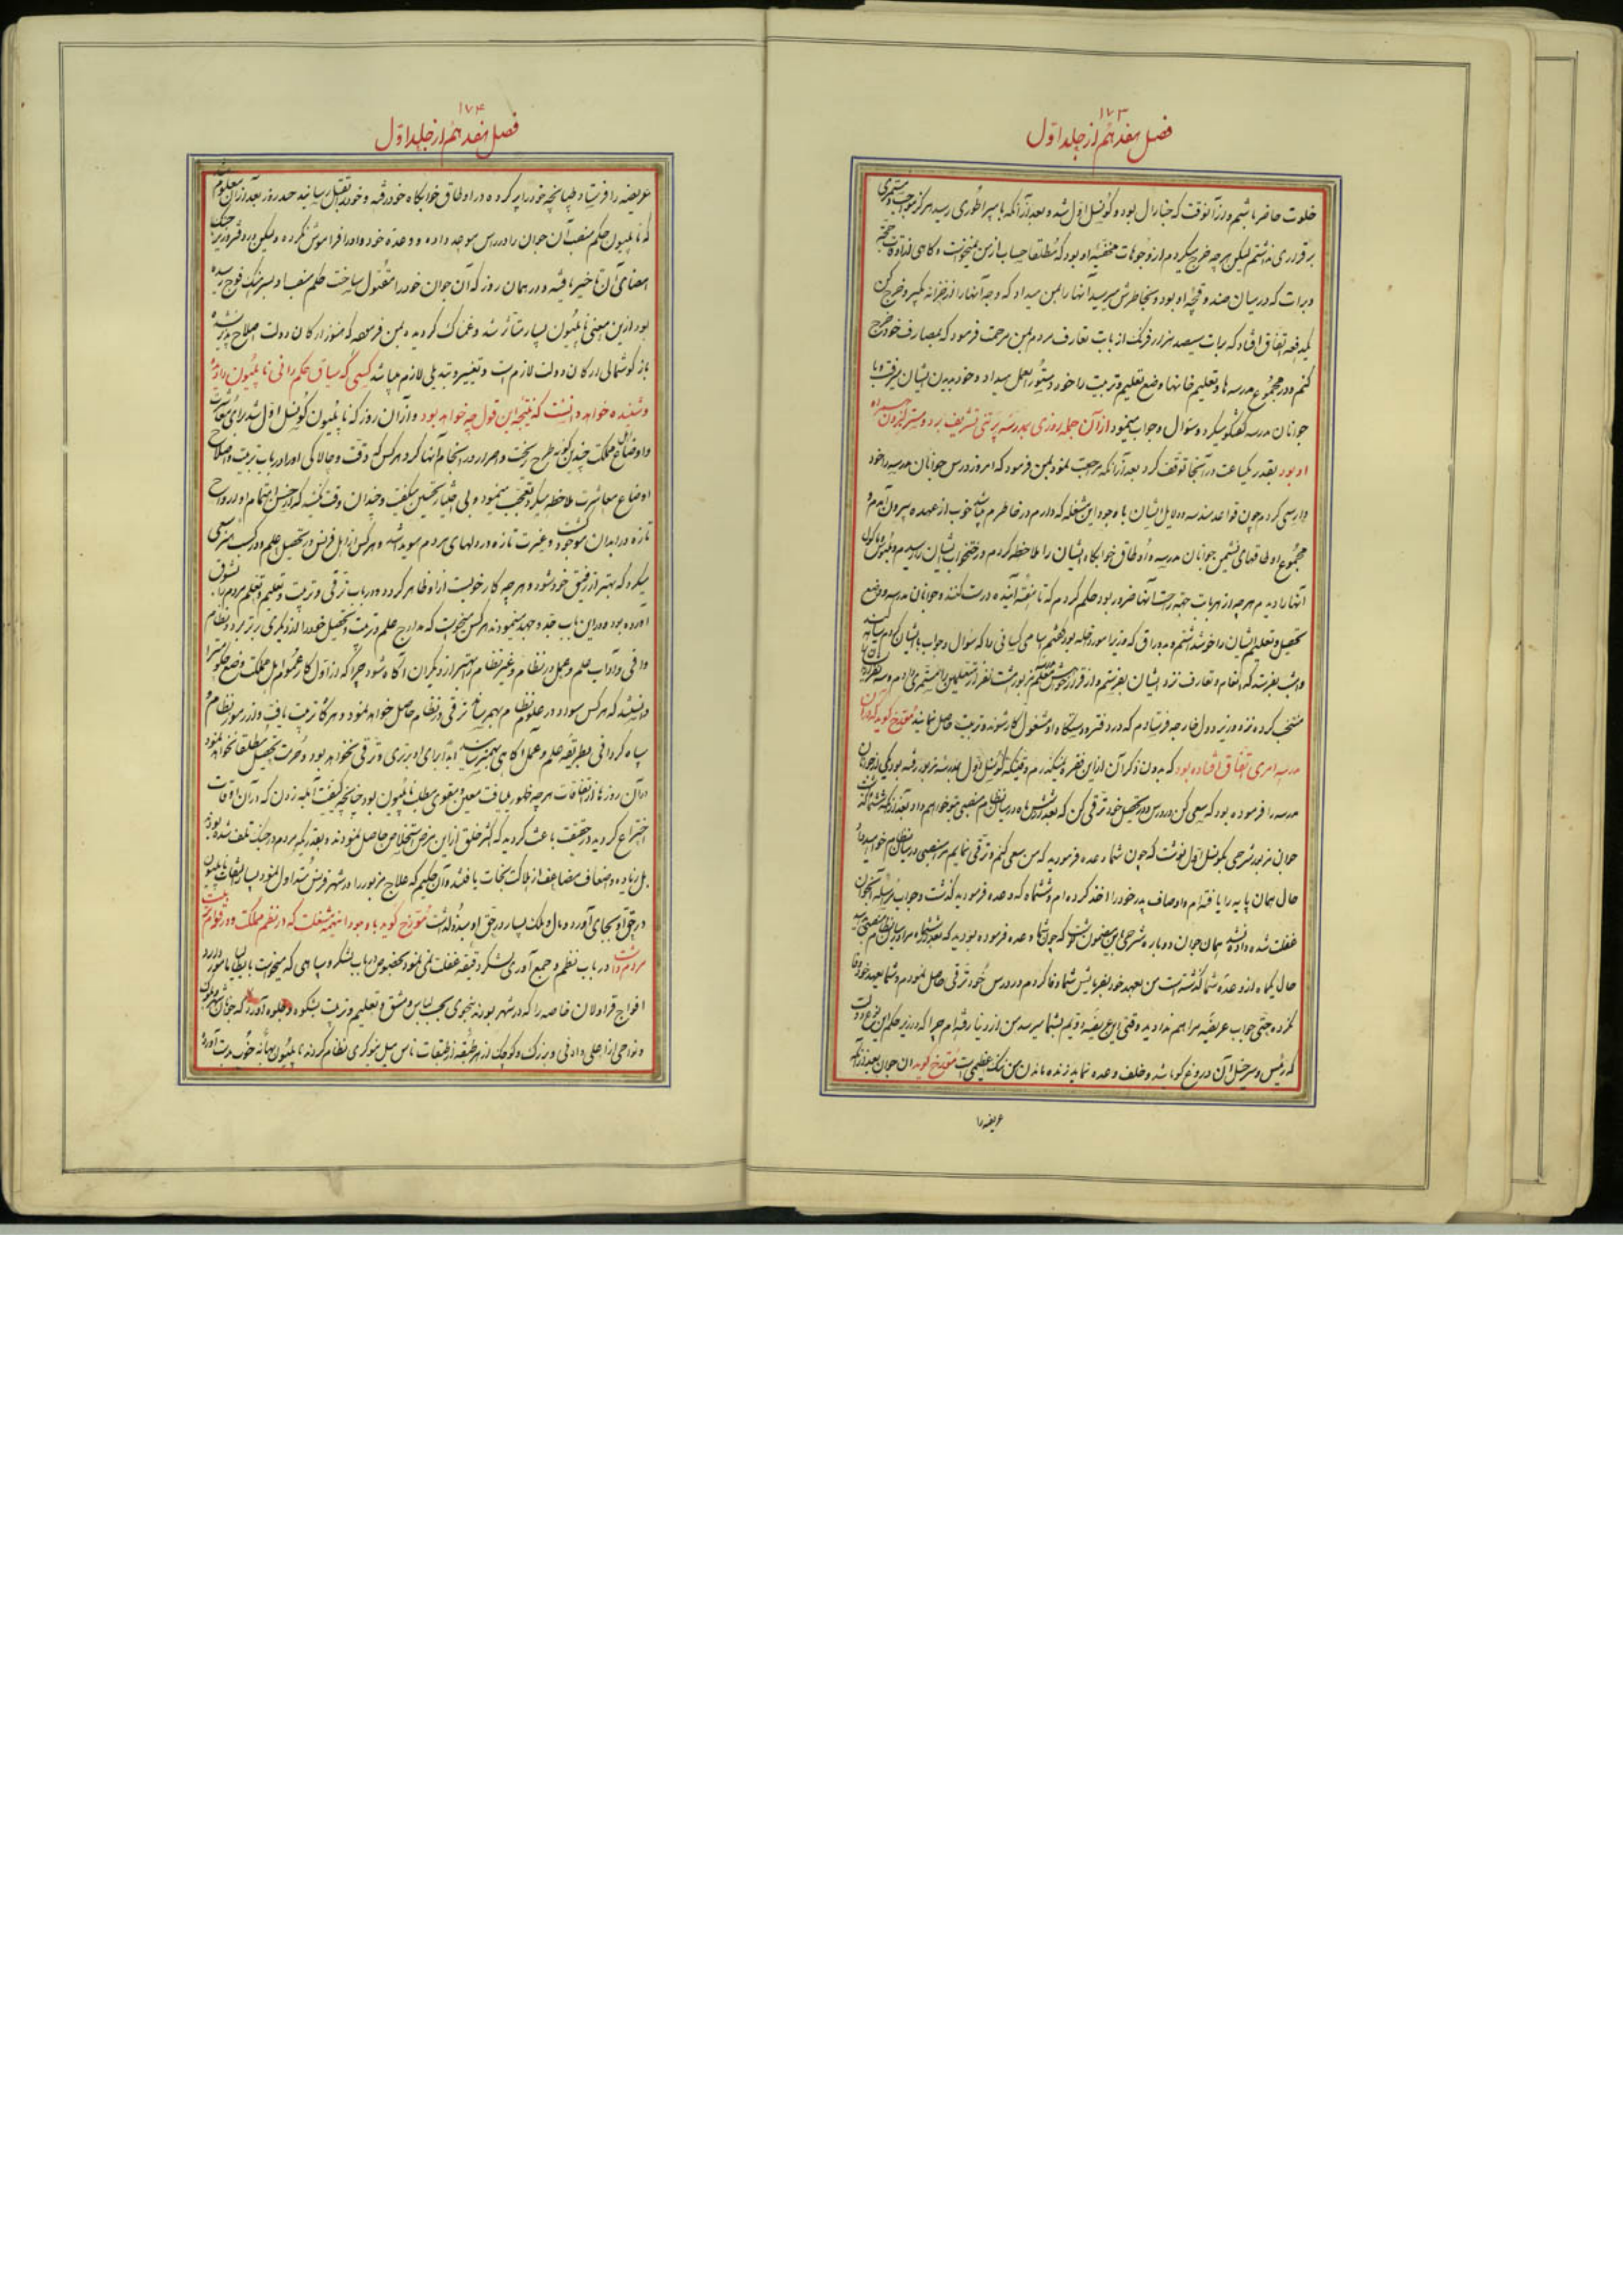 ۱۷۳
فصل هفدهم از جلد اول
خلوت حاضر باشیم و در آنوقت که جنارال بود و کونسل اول شده و بعد از آنکه بامپراطوری رسید هرگز مواجب و مستمری
برقراری نداشتم لیکن هرچه خرج میکردم از وجوهات مخفیه او بود که مطلقا حساب از من نمیخواست و گاهی اوقات
و برات که در میان صندوقچه او بود و بخاطرش میرسید آنها را بمن میداد که وجه آنها را از خزانه بگیر و خرج کن
یکدفعه اتفاق افتاد که برات سیصد هزار فرنگ از بابت تعارف مردم بمن مرحمت فرمود که بمصارف خود خرج
کنم و در مجموع مدرسه ها و تعلیم خانها وضع تعلیم و تربیت را خود دستور العمل میداد و خود بدیدن ایشان میرفت و با
جوانان مدرسه گفتگو میکرد و سئوال و جواب مینمود از آن جمله روزی بمدرسه تشریف برد و
او بود بقدر یکساعت در آنجا توقف کرد بعد از آنکه مرجعت نمود بمن فرمود که امروز درس جوانان مدرسه را خود
وارسی کردم چون قواعد هندسه و دلایل ایشان با وجود این مشغله که دارم در خاطرم خوب از عهده بیرون آمدم و
مجموع اوطاقهای نشیمن جوانان مدرسه و اوطاق خوابگاه ایشان را ملاحظه کردم و رختخواب ایشان را دیدم و
آنها را دیدم هرچه از هر بابت جهة راحت آنها ضرور بود حکم کردم که تا هفته آینده درست کنند و جوانان مدرسه و وضع
تحصیل و تعلیم ایشان را خوش داشتم و
و امشب بفرست که انعام و تعارف نزد ایشان بفرستم و از قرار
منتخب کرده نزد وزیر دول خارجه فرستادم که در دفتر و دستگاه او مشغول کار شوند و تربیت حاصل نمایند مورخ گوید که در آن
مدرسه امری اتفاق افتاده بود که بدون ذکر آن از این فقره نمیگذرم وقتیکه کونسل اول بمدرسه مزبور رفته بود یکی از جوانان
مدرسه را فرموده بود که سعی کن و در درس و در تحصیل خود ترقی کن که بعد از شش ماه در میان نظام منصبی بتو خواهم داد بعد از آنکه ششماه گذشت
جوان مزبور شرحی بکونسل اول نوشت که چون شما وعده فرمودید که من سعی کنم و ترقی نمایم مرا منصبی در میان نظام خواهید داد
حال همان پایه را یافته ام و اوصاف پدر خود را اخذ کرده ام و ششماه که وعده فرمودید گذشت و جواب مرسله آنجوان
غفلت شده و داده نشد همان جوان دوباره شرحی باین مضمون نوشت که چون شما وعده فرموده بودید که بعد از ششماه مرا در میان نظام منصبی بدهید
حال یکماه از وعده شما گذشته است من بعهد خود بفرمایش شما وفا کردم و در درس خود ترقی حاصل نمودم و شما بعهد خود وفا
نکرده حتی جواب عریضه مرا هم ندادید وقتی این عریضه دویم بشما میرسد من از دنیا رفته ام چرا که در زیر حکم این نوع دولت
که رئیس و سرخیل آن دروغگو باشد و خلف وعده نماید زنده ماندن من ننگ عظیمی است مورخ گوید آن جوان بعد از آنکه
عریضه را
۱۷۴
فصل هفدهم از جلد اول
عریضه را فرستاد طپانچه خود را پر کرده در اوطاق خوابگاه خود رفته و خود را بقتل رسانید چند روز بعد از آن معلوم شد
که ناپلیون حکم منصب آن جوان را در درس موجه داده و وعده خود و او را فراموش نکرده ولیکن در دفتر وزیر جنگ
امضای آن تاخیر یافته و در همان روز که آن جوان خود را مقتول ساخت حکم منصب او بسرهنگ فوج رسیده
بود از این معنی ناپلیون بسیار متأثر شد و غمناک گردیده بمن فرمود که هنوز ارکان دولت اصلاح پذیر نشده
باز گوشمالی ارکان دولت لازم است و تغییر و تبدیلی لازم میباشد کسی که سیاق حکم رانی ناپلیون را دیده
و شنیده خواهد دانست که نتیجه این قول چه خواهد بود و از آن روز که ناپلیون کونسل اول شد برای
و اوضاع مملکت چندین گونه طرح ریخت و اصرار در استحکام آنها کرد هرکس که دقت و چالاکی او را در باب تربیت و اصلاح
اوضاع معاشرت ملاحظه میکرد تعجب مینمود و بی اختیار تحسین میگفت و چندان وقت نگذشت که از حسن اهتمام او در
تازه در ابدان موجود گشت و غیرت تازه در دلهای مردم هویدا شد و هرکس از اهل فرانس در تحصیل علم و در کسب هنر سعی
میکرد که بهتر از رفیق خود شود و هرچه کار خوبست از او ظاهر کرده در باب ترقی و تربیت و تعلیم و تعلم مردم را بشوق
آورده بود و در این باب جد و جهد مینمودند هرکس میخواست که مدارج علم و تربیت و تحصیل خود را از دیگری برتر برد و بنظام
وافی و آداب علم و عمل در نظام و غیر نظام بهتر از دیگران آگاه شود چرا که از اول کار عموم اهل مملکت وضع حکومت را
دانستند که هرکس سواد در علوم نظام بهم رساند ترقی در نظام حاصل خواهد نمود و هرگاه تربیت نیافت و از رموز نظام و
سپاه گردانی و طریقه علم و عمل آگاهی بهم نرساند ابدا برای او برتری و ترقی نخواهد بود و حرمت تحصیل مطلقا نخواهد نمود
در آن روزها از اتفاقات هرچه ظهور مییافت معین و مقوی مطلب ناپلیون بود چنانچه کیفیت آبله زدن که در آن اوقات
اختراع گردید در حقیقت باعث گردید که اکثر خلق از این مرض استخلاص حاصل نمودند و بقدریکه مردم در جنگ تلف شده بودند
بل زیاده و اضعاف مضاعف از هلاکت نجات یافتند و آن حکیم که علاج مزبور را در شهر فرانس متداول نمود بسیار التفات ناپلیون
در حق او بجای آورد و مال و ملک بسیار در حق او مبذول داشت مورخ گوید با وجود اینهمه مشغلت که در نظم مملکت و در قوام تربیت
مردم داشت در باب نظم و جمع آوری لشکر دقیقه غفلت نمی نمود بخصوص در باب لشکر و سپاهی که میخواست
افواج قراولان خاصه را که در شهر بودند بنحوی بحسب لباس و مشق و تعلیم و تربیت بشکوه و جلوه آورد که جوانان شهر
و نواحی از اعلی و ادنی و بزرک و کوچک از هر طبقه از طبقات ناس میل بنوکری نظام کردند ناپلیون بهانه خوب بدست آورد